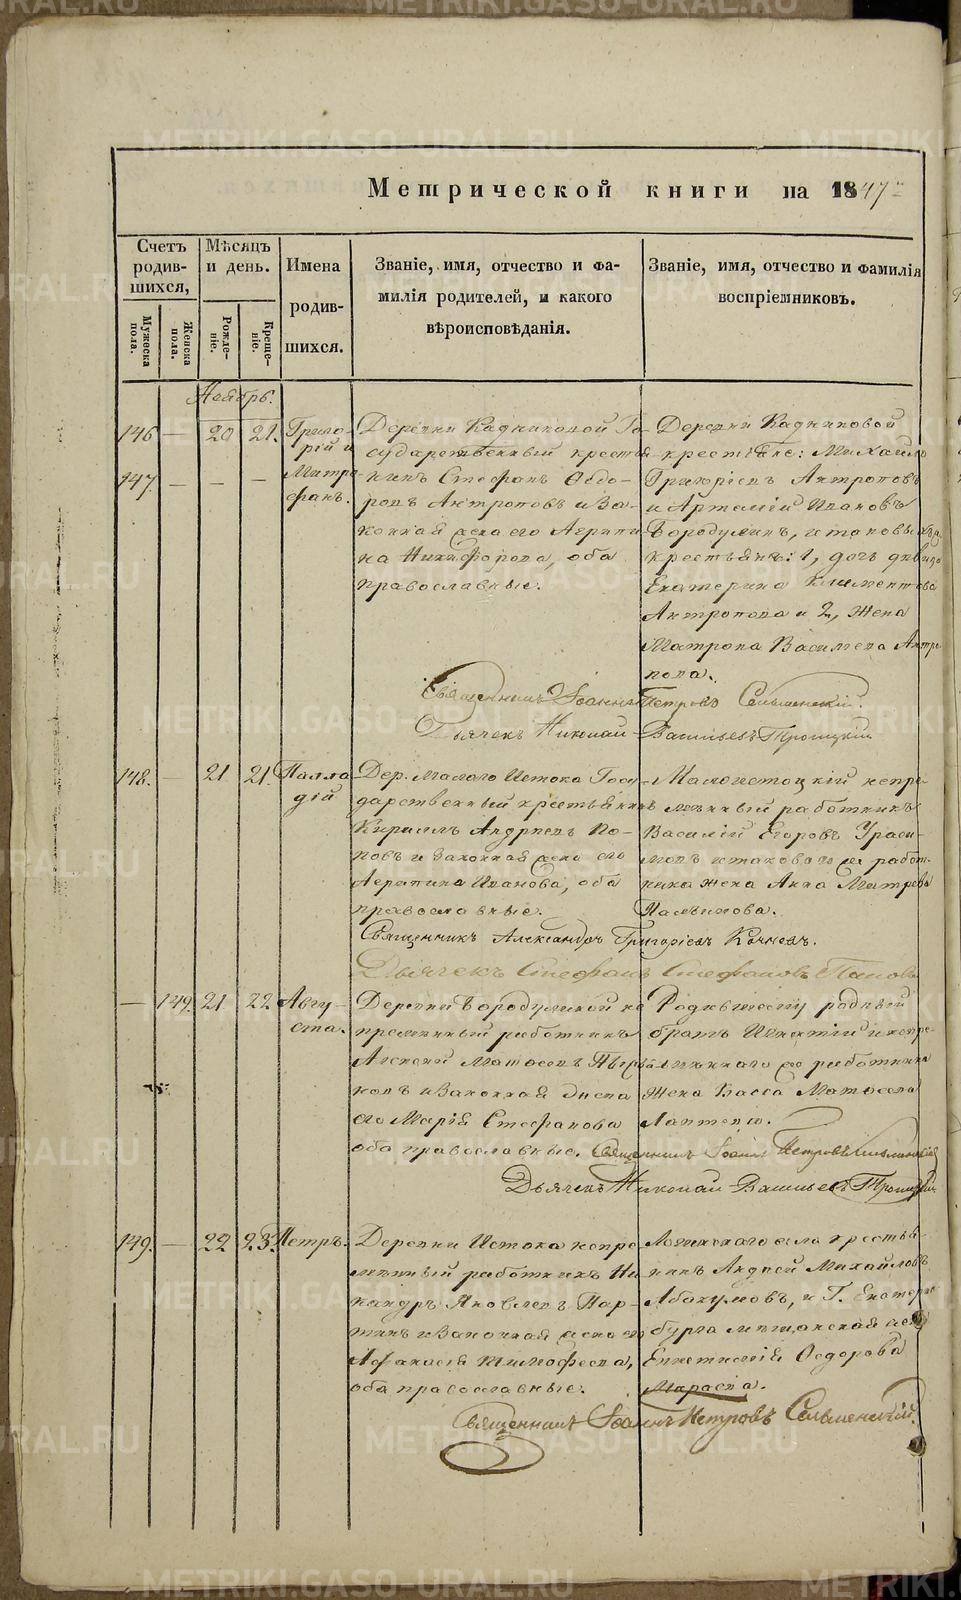 Метрической книги на 1847 г.
Счетъ родив-шихся,
Мѣсяцъ и день.
Имена родив-шихся.
Званіе, имя, отчество и фа-
милія родителей, и какого
вѣроисповѣданія.
Званіе, имя, отчество и фамилія
воспріемниковъ.
Мужеска пола.
Женска пола.
Рожде-ніе.
Креще-ніе.
Ноябрь.
146 — 20 21. Григо-
рій и
147. — — — Митро-
фанъ.
Деревни Кадниковой Го-
сударственный кресть-
нинъ Стефанъ Ѳедо-
ровъ Антроповъ и За-
конная жена его Агрипи-
на Никифорова, оба
православные.
Деревни Кадниковой
крестьяне: Михаило
Григоріевъ Антроповъ
и Артемій Ивановъ
Бородулинъ, и таковыхъ
крестьянъ: 1, дочь дѣвица
Екатерина Климентова
Антропова и 2, жена
Матрона Васильева Антро-
пова.
Священникъ Іоаннъ Петровъ Сельменскій.
Дьячекъ Николай Васильевъ Троицкій
148. — 21 21. Палла-
дій
Дер. Малаго Истока Госу-
дарственный крестьянинъ
Кириллъ Андреевъ По-
повъ и законная жена его
Агрипина Иванова, оба
православные.
Малоистоцкій непре-
мѣнный работникъ
Василій Егоровъ Ураси-
мовъ и таковаго же работ-
ника жена Анна Дмитрева
Священникъ Александръ Григоріевъ Кочневъ.
Дьячекъ Стефанъ Стефановъ Поповъ
— 149. 21 22 Авгу-
ста.
Деревни Бородулиной не
премѣнный работникъ
Алексей Матѳеевъ
и Законная жена
его Марія Стефанова
оба православные.
Родившейся родный
братъ Игнатій и непре-
мѣннаго же работника
жена Васса Матѳеева
Лаптева.
Священникъ Іоаннъ Петровъ Сельменскій
Дьячекъ Николай Васильевъ Троицкій
149. — 22 23. Петръ.
Деревни Истока непре-
мѣнный работникъ Ни-
кандръ Яковлевъ Пар-
тинъ и Законная жена его
Афанасія Тимофеева,
оба православные.
Логиновскаго села крестья-
нинъ Андрей Михайловъ
Абакумовъ, и Г. Екатерин-
бурга мѣщанская жена
Епистимія Ѳедорова
Священникъ Іоаннъ Петровъ Сельменскій.
METRIKI.GASO-URAL.RU